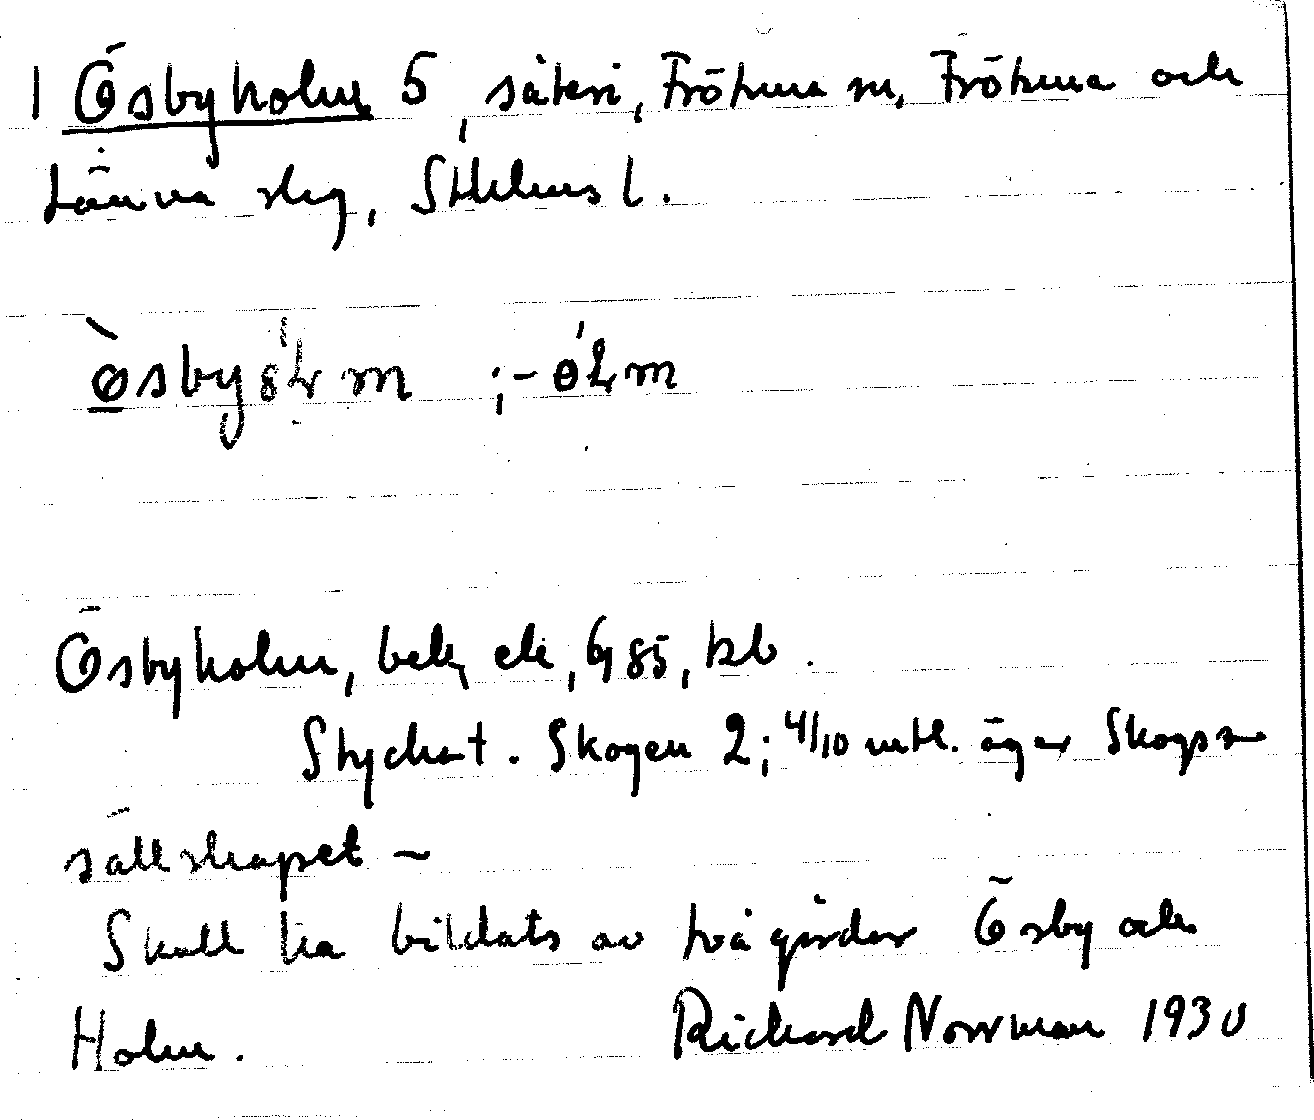 1 Ösbyholm 5, säteri, Frötuna sn, Frötuna och
Länna slg, Sthlms l.
òsbyól m ; - ól m
Ösbyholm, bek, ek, Gj 85, kb.
Styckat. Skogen 2; 4/10 mtl. äger Skogs-
sällskapet –
Skall ha bildats av två gårdar Ösby och
Holm. Richard Norrman 1930